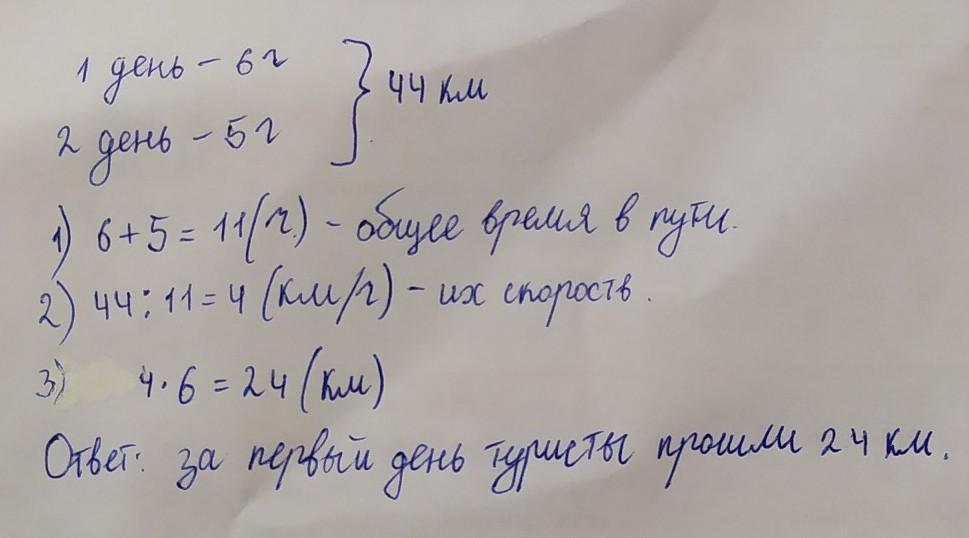 1 день – 6 ч
2 день – 5 ч
} 44 км
1) 6 + 5 = 11 (ч.) – общее время в пути.
2) 44 : 11 = 4 (км/ч) – их скорость.
3) 4 · 6 = 24 (км)
Ответ: за первый день туристы прошли 24 км.